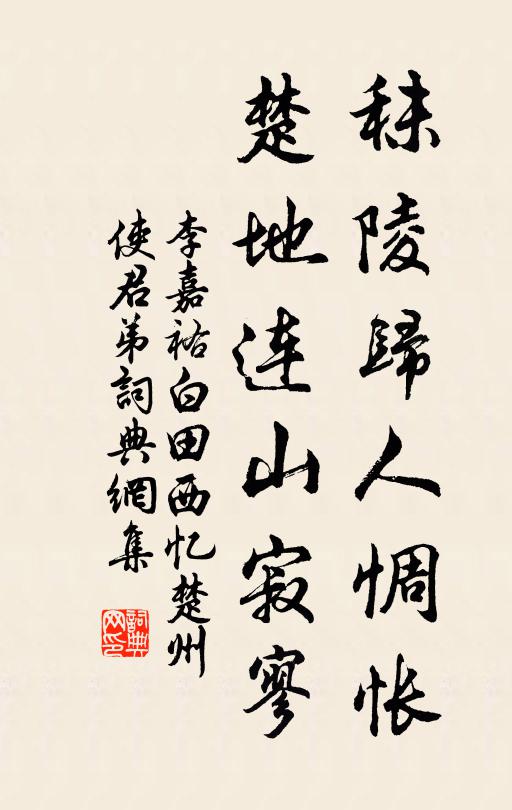 秣陵歸人惆怅
楚地连山寂寥
李嘉祐白田西忆楚州
使君弟詞典網集
詞典网印